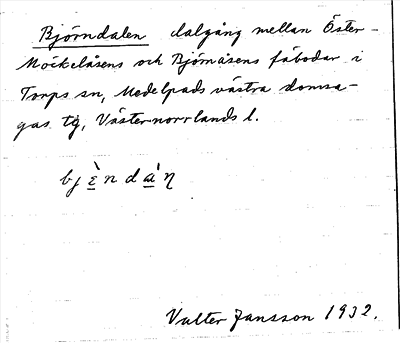 Björndalen dalgång mellan Öster-
Mockelåsens och Björnåsens fäbodar i
Torps sn, Medelpads västra domsa-
gas tg, Västernorrlands l.
Valter Jansson 1932.